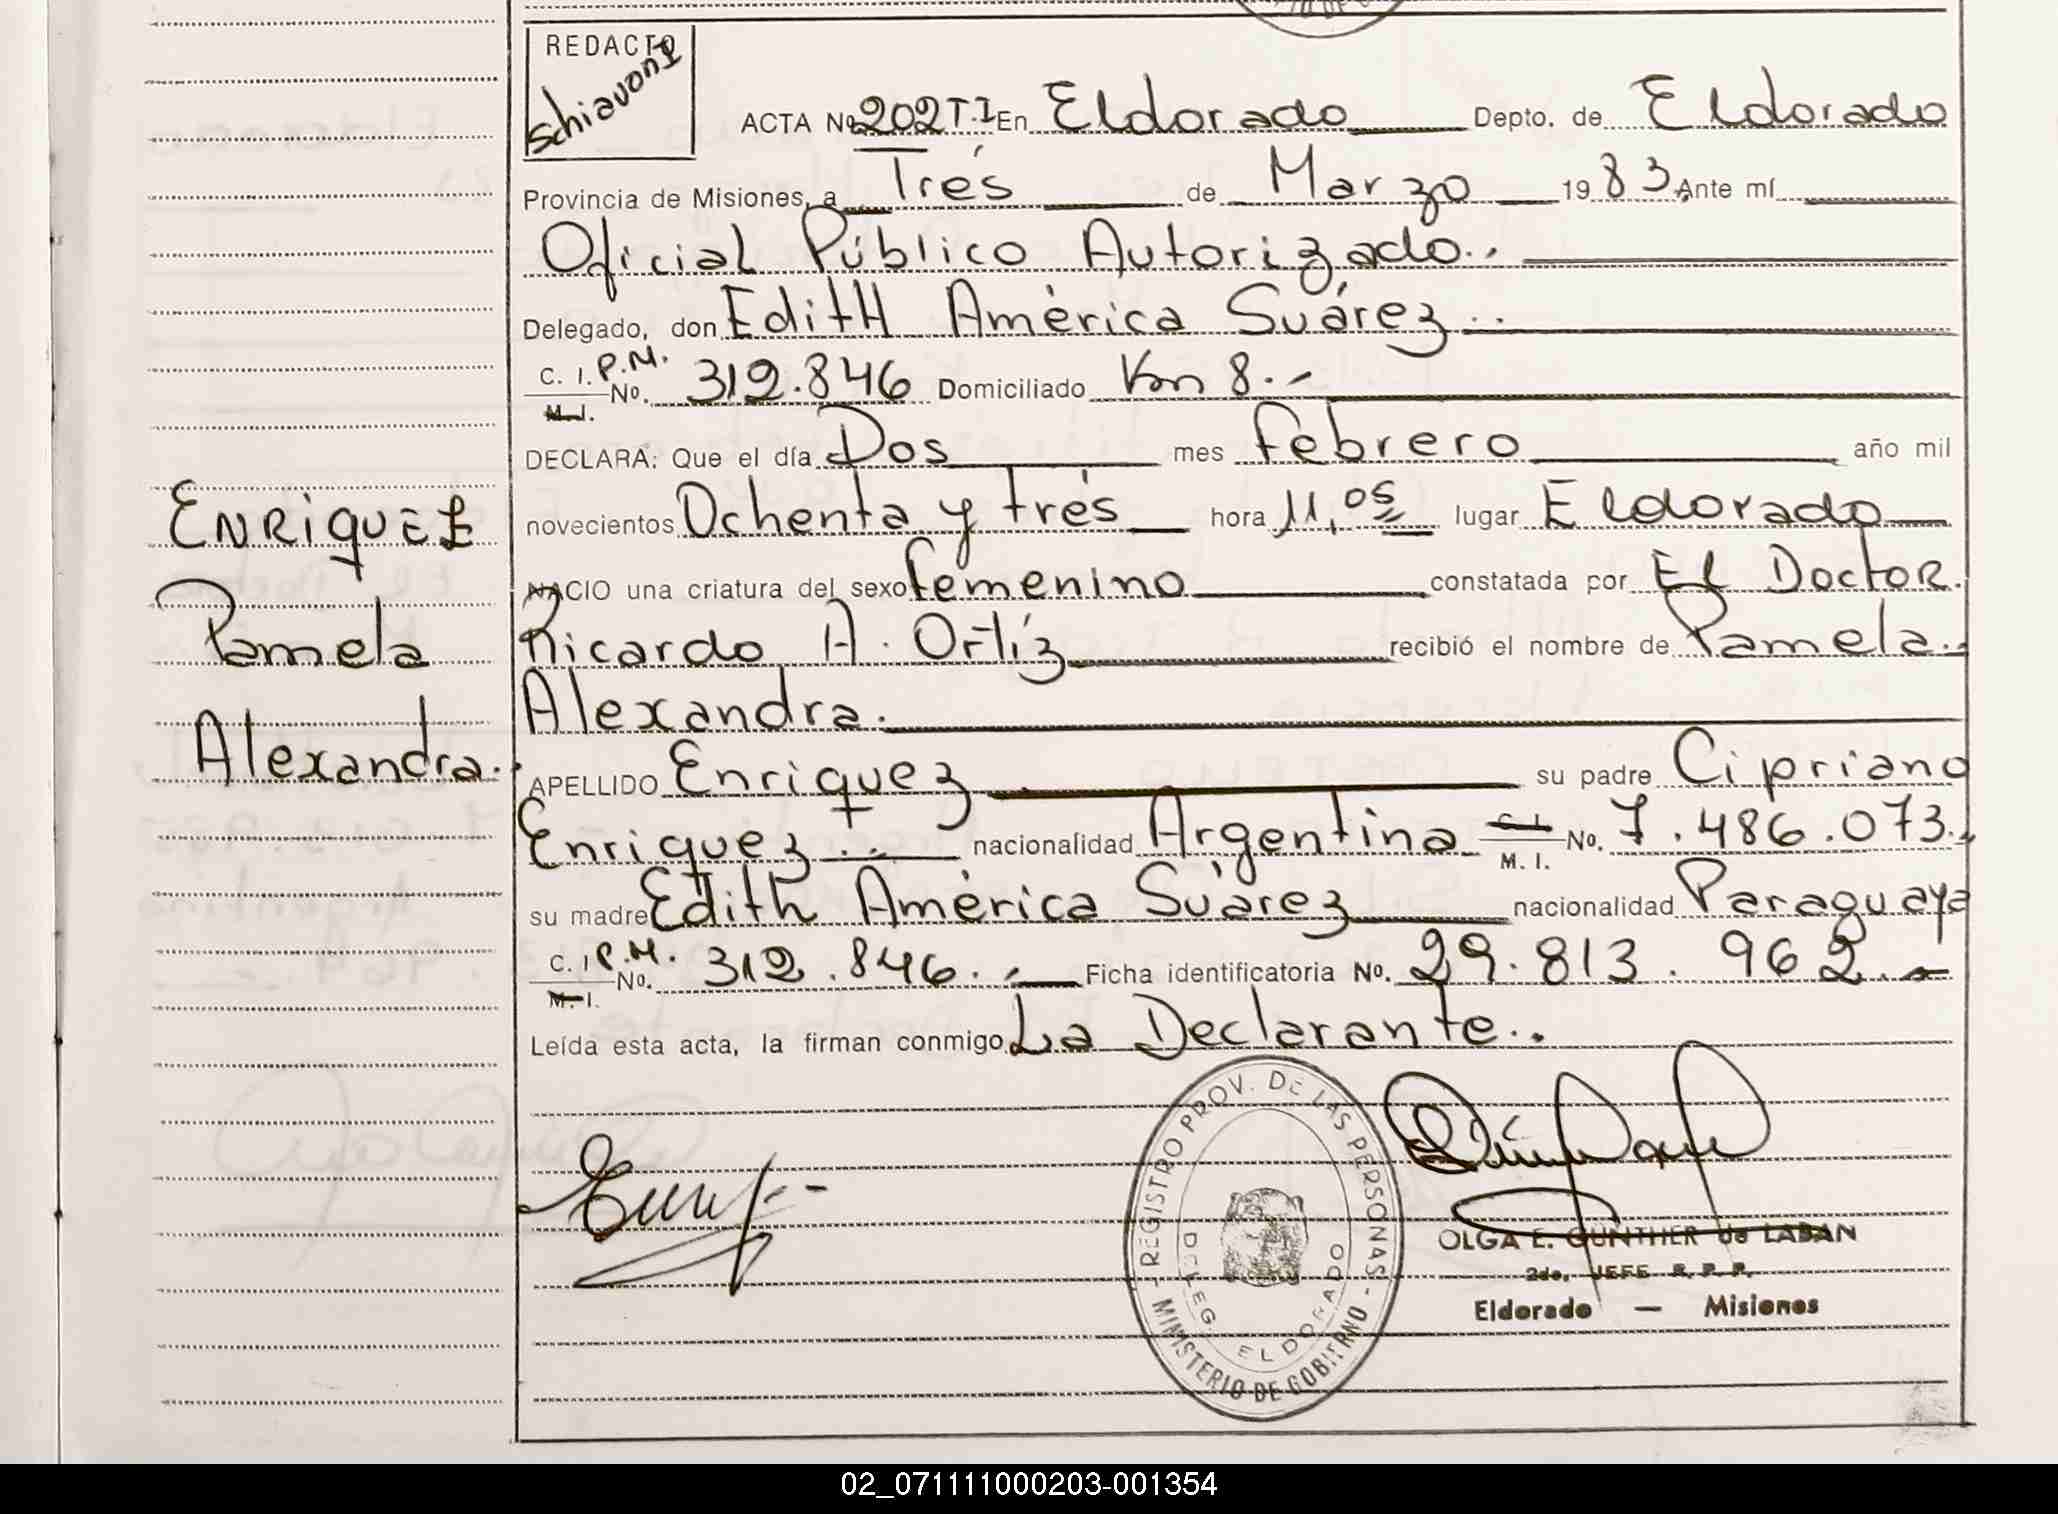 REDACTO
Schiavoni
ACTA Nº 202 T.I En Eldorado Depto. de Eldorado
Provincia de Misiones, a Trés de Marzo 1983, Ante mí
Oficial Público Autorizado.
Delegado, don Edith América Suárez..
C. I. P.M.
M. I. No. 312.846 Domiciliado Km 8.-
DECLARA: Que el día Dos mes Febrero año mil
novecientos Ochenta y trés hora 11,05 lugar Eldorado
NACIO una criatura del sexo femenino constatada por El Doctor.
Ricardo A. Ortíz recibió el nombre de Pamela.
Alexandra.
ENRIQUEZ
Pamela
Alexandra.
APELLIDO Enriquez su padre Cipriano
Enriquez.. nacionalidad Argentina C. I.
M. I. No. 7.486.073.
su madre Edith América Suárez nacionalidad Paraguaya
C. I P.M.
M. I. No. 312.846.- Ficha identificatoria No. 29.813.962.-
Leída esta acta, la firman conmigo La Declarante..
REGISTRO PROV. DE LAS PERSONAS - MINISTERIO DE GOBIERNO -
DELEG ELDORADO
OLGA E. GUNTHER de LABAN
2do. JEFE R. P. P.
Eldorado — Misiones
02_071111000203-001354